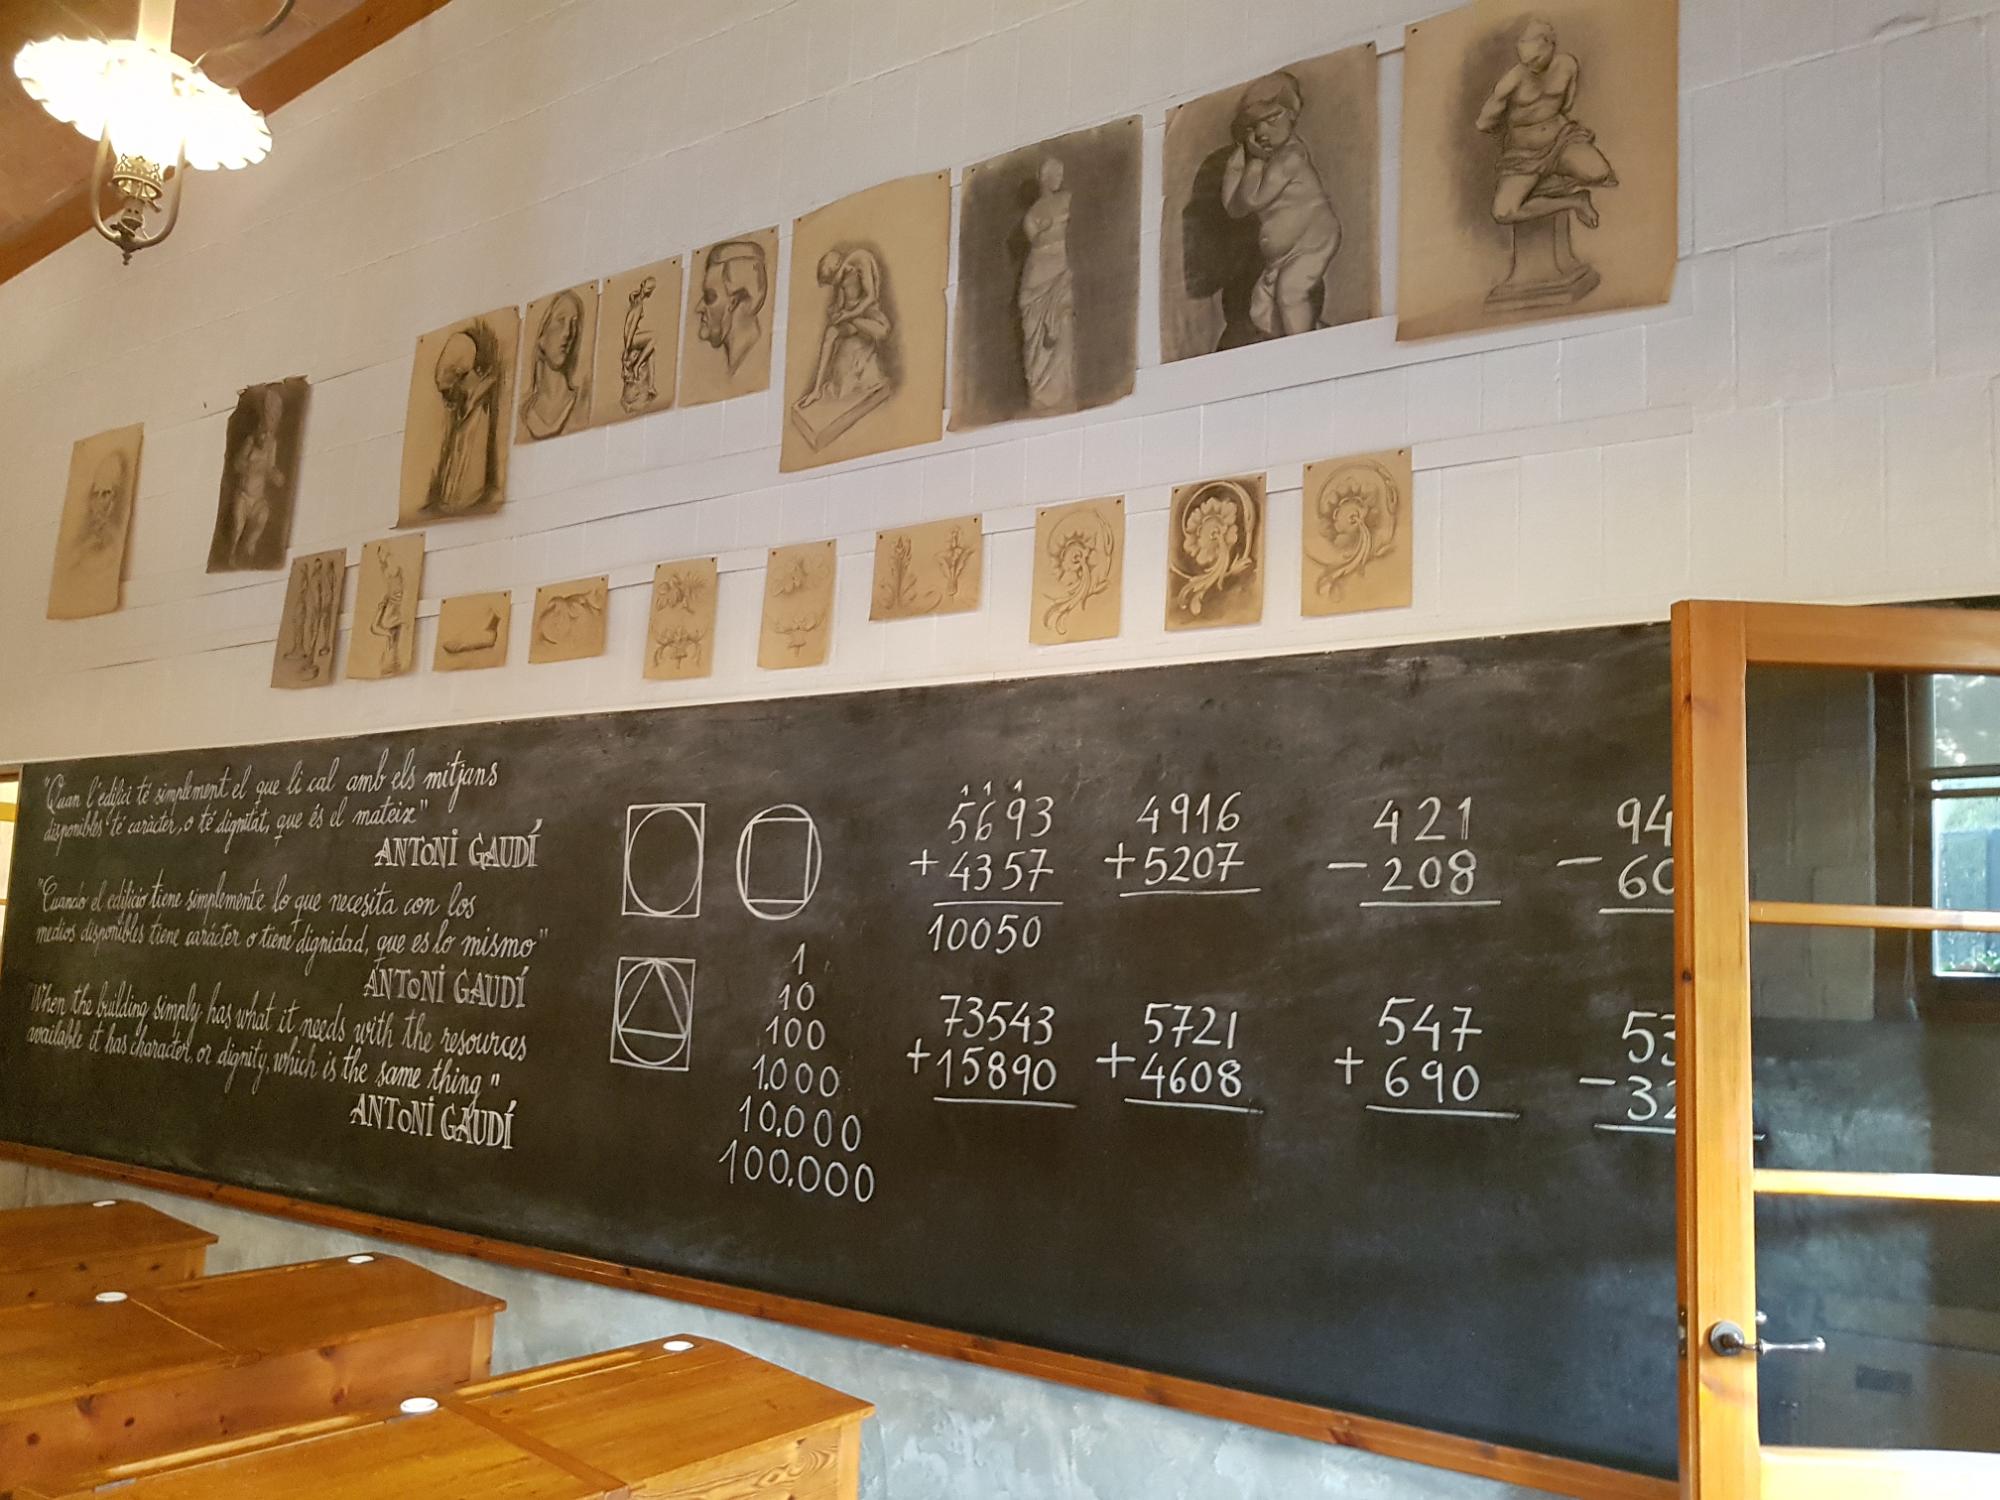 "Quan l'edifici té simplement el que li cal amb els mitjans
disponibles té caràcter, o té dignitat, que és el mateix"
ANTONI GAUDÍ
"Cuando el edificio tiene simplemente lo que necesita con los
medios disponibles tiene carácter o tiene dignidad, que es lo mismo"
ANTONI GAUDÍ
"When the building simply has what it needs with the resources
available it has character, or dignity, which is the same thing"
ANTONI GAUDÍ
1
10
100
1.000
10.000
100.000
1 1 1
5693
+4357
10050
4916
+5207
421
-208
94
-60
73543
+15890
5721
+4608
547
+690
53
-32